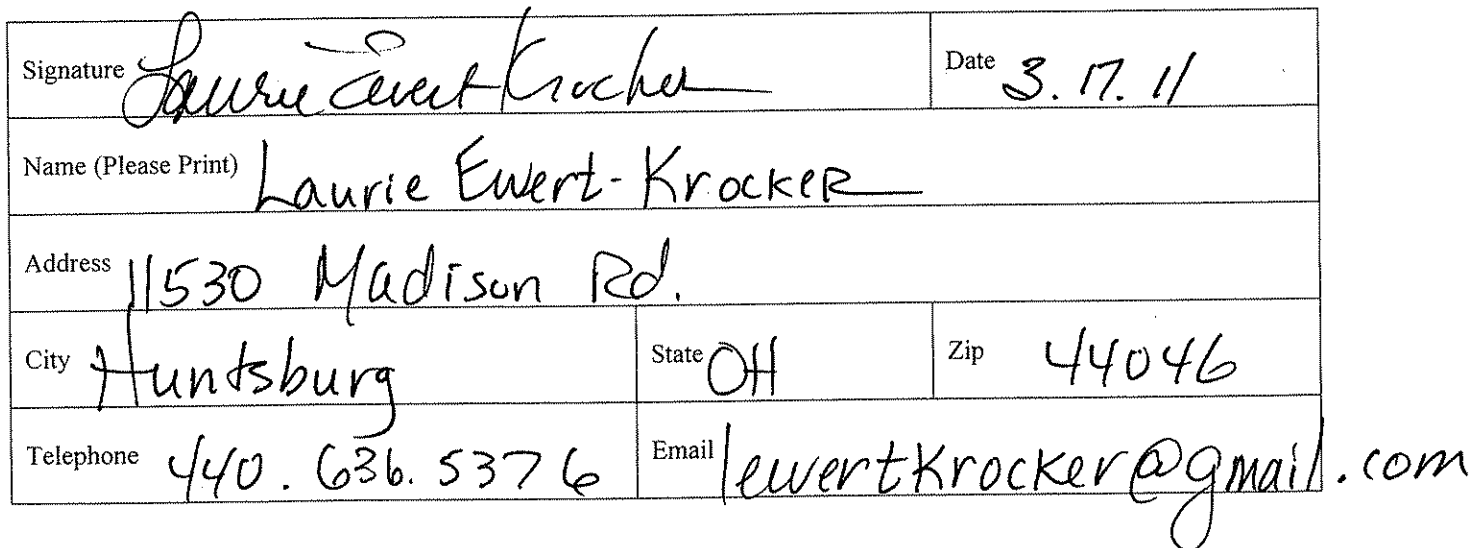 Signature Laurie Ewert Krocker Date 3.17.11
Name (Please Print) Laurie Ewert-Krocker
Address 11530 Madison Rd.
City Huntsburg State OH Zip 44046
Telephone 440.636.5376 Email lewertkrocker@gmail.com